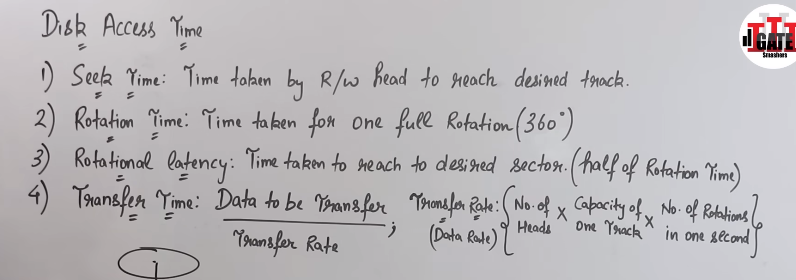 Disk Access Time
GATE
Smashers
1) Seek Time: Time taken by R/W head to reach desired track.
2) Rotation Time: Time taken for one full Rotation (360°)
3) Rotational latency: Time taken to reach to desired sector. (half of Rotation Time)
4) Transfer Time: Data to be Transfer / Transfer Rate ; Transfer Rate: (Data Rate) { No. of Heads x Capacity of one Track x No. of Rotations in one second }